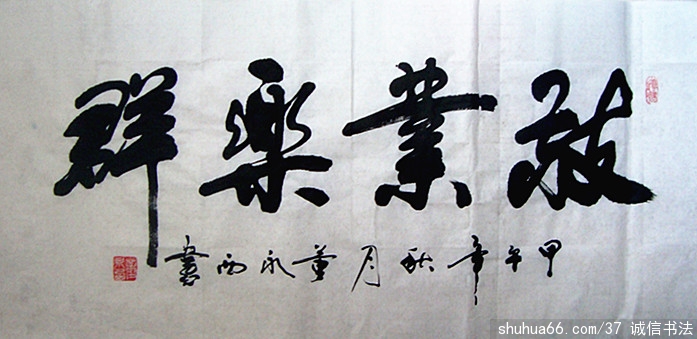 敬業樂群
甲午年秋月董永西書
shuhua66.com/37 诚信书法